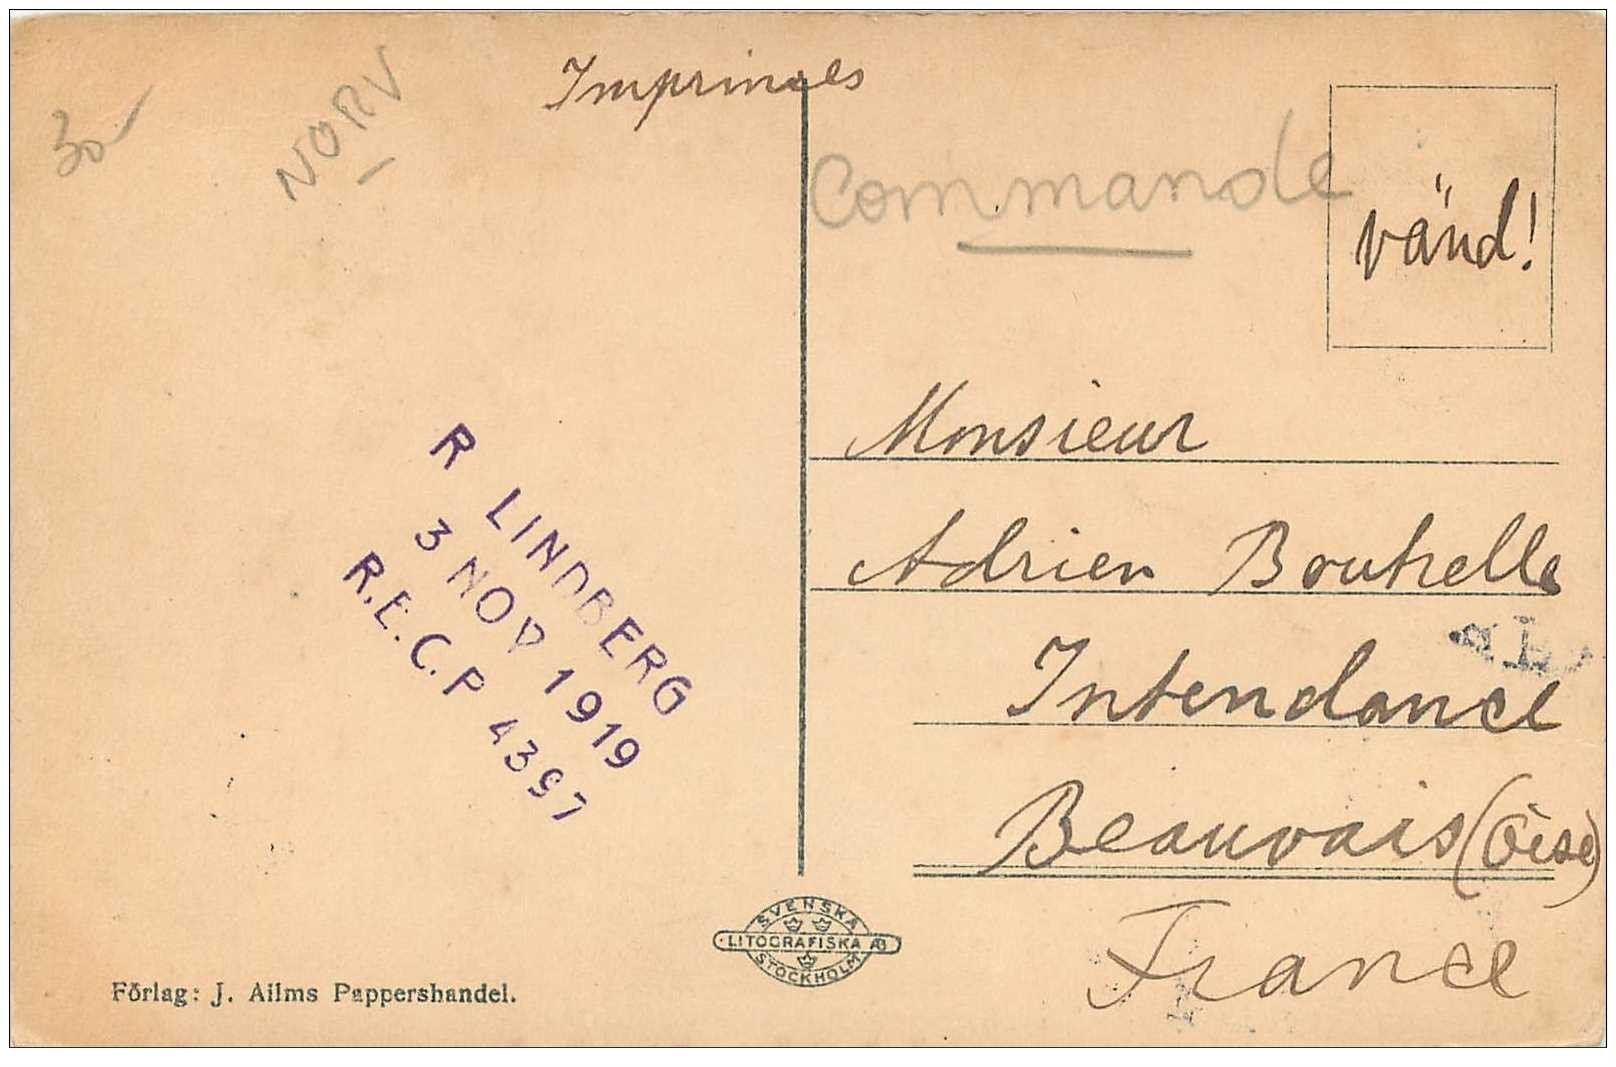 30-
NORV
Imprimées
Commande
vänd!
R LINDBERG
3 NOV 1919
R.E.C.P 4397
Monsieur
Adrien
Intendance
Beauvais (Oise)
France
SVENSKA
LITOGRAFISKA AB
STOCKHOLM
Förlag: J. Ailms Pappershandel.